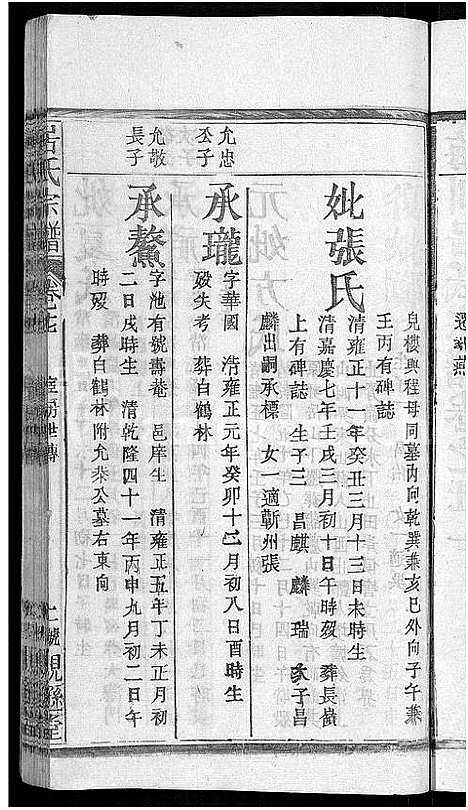 兒樓與程母同墓內向乾巽兼亥巳外向子午兼
壬丙有碑誌
妣張氏
清雍正十一年癸丑三月十三日未時生
清嘉慶七年壬戌三月初十日午時歿 葬長嶺
上有碑誌 生子三 昌麒 麟 瑞 次子昌
麟出嗣承標 女一適蘄州張
允忠
公子
承瓏
字華國 清雍正元年癸卯十二月初八日酉時生
歿失考 葬白鶴林
允敬
長子
承鰲
字池有號壽菴 邑庠生 清雍正五年丁未正月初
二日戌時生 清乾隆四十一年丙申九月初二日午
時歿 葬白鶴林附允恭公墓右東向
呂氏宗譜
卷七
世傳